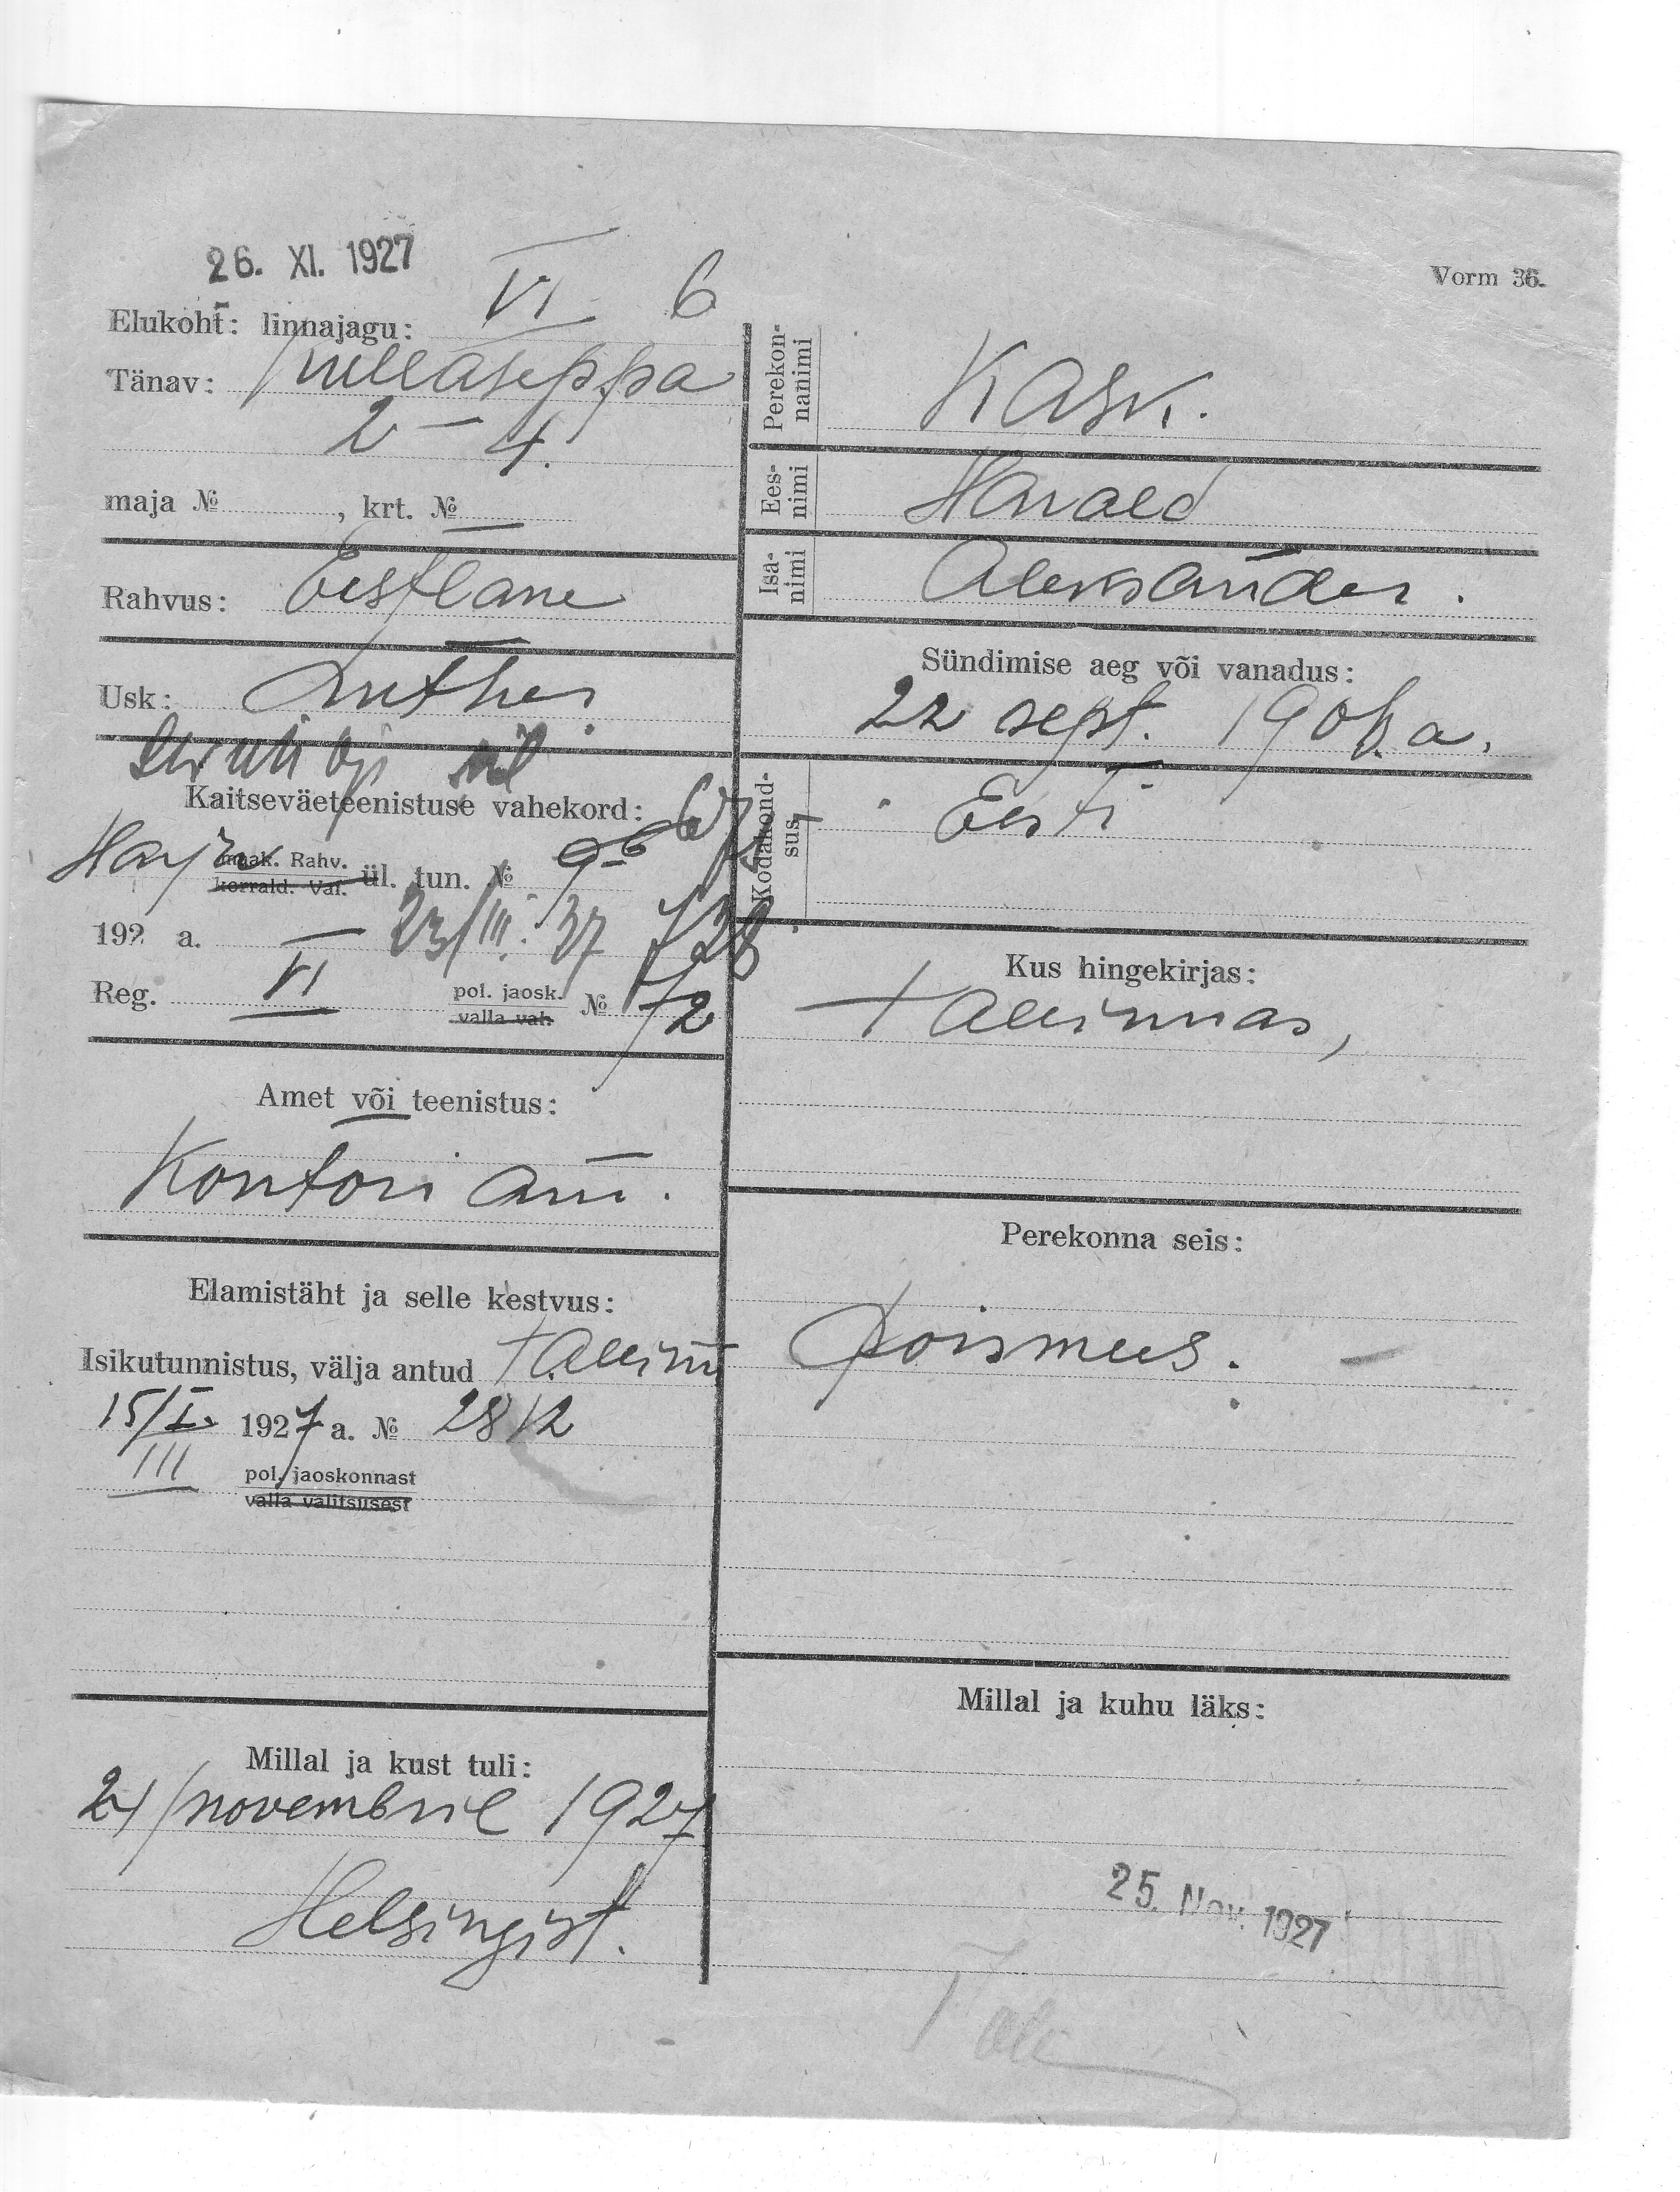 26. XI. 1927
Vorm 36.
Elukoht: linnajagu: VI 6
Tänav: Pullasseppa
2 - 4.
maja №, krt. №
Rahvus: Eestlane
Usk: Luther.
Kaitseväeteenistuse vahekord:
Harju Rahv. ül. tun. №
korrald. Val.
192 a. - 23/III. 37 728
Reg. VI pol. jaosk. № 72
valla vah.
Amet või teenistus:
Kontori am.
Elamistäht ja selle kestvus:
Isikutunnistus, välja antud Tallinn
15/I. 1927 a. № 2812
III pol. jaoskonnast
valla valitsusest
Millal ja kust tuli:
21/novembril 1927
Helsingist.
Perekonnanimi Kask.
Eesnimi Harald
Isanimi Aleksander.
Sündimise aeg või vanadus:
22 sept. a.
Kodakondsus Eesti
Kus hingekirjas:
Tallinnas,
Perekonna seis:
Poismees.
Millal ja kuhu läks:
25. Nov. 1927